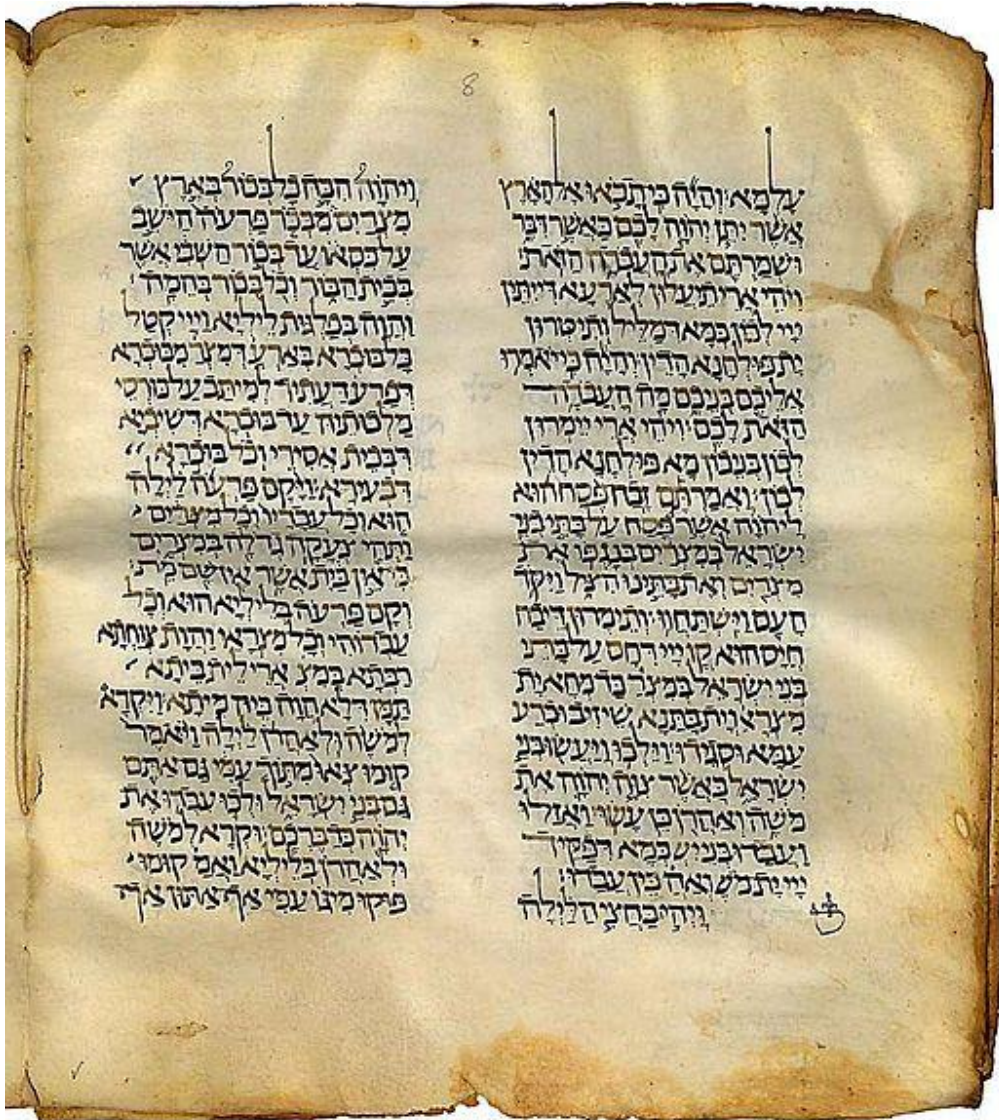 8
עלמא׃ והיה כי תבאו אל הארץ
אשר יתן יהוה לכם כאשר דבר
ושמרתם את העבדה הזאת׃
ויהי ארי תיעלון לארעא דייתין
ייי לכון כמא דמליל ותיטרון
ית פולחנא הדין׃ והיה כי יאמרו
אליכם בניכם מה העבדה
הזאת לכם׃ ויהי ארי יימרון
לכון בניכון מא פולחנא הדין
לכון׃ ואמרתם זבח פסח הוא
ליהוה אשר פסח על בתי בני
ישראל במצרים בנגפו את
מצרים ואת בתינו הציל ויקד
העם וישתחוו׃ ותימרון דיבח
חיס הוא קדן ייי דרחם על בתי
בני ישראל במצר כד מחא ית
מצראי וית בתנא שיזיב וכרע
עמא וסגידו׃ וילכו ויעשו בני
ישראל כאשר צוה יהוה את
משה ואהרן כן עשו׃ ואזלו
ועבדו בני יש כמא דפקיד
ייי ית מש ואה כין עבדו׃
ויהי בחצי הלילה
ויהוה הכה כל בכור בארץ
מצרים מבכר פרעה הישב
על כסאו עד בכור השבי אשר
בבית הבור וכל בכור בהמה׃
והוה בפלגות ליליא וייי קטל
כל בוכרא בארעא דמצר מבוכרא
דפרעה דעתיד למיתב על כורסי
מלכותיה עד בוכרא דשיביא
דבבית אסירי וכל בוכרא
דבעירא׃ ויקם פרעה לילה
הוא וכל עבדיו וכל מצרים
ותהי צעקה גדלה במצרים
כי אין בית אשר אין שם מת׃
וקם פרעה בליליא הוא וכל
עבדוהי וכל מצראי והות צוחתא
רבתא במצ ארי לית ביתא
תמן דלא הוה ביה מיתא׃ ויקרא
למשה ולאהרן לילה ויאמר
קומו צאו מתוך עמי גם אתם
גם בני ישראל ולכו עבדו את
יהוה כדברכם׃ וקרא למשה
ולאהרן בליליא ואמ קומו
פוקו מיגו עמי אף אתון אף